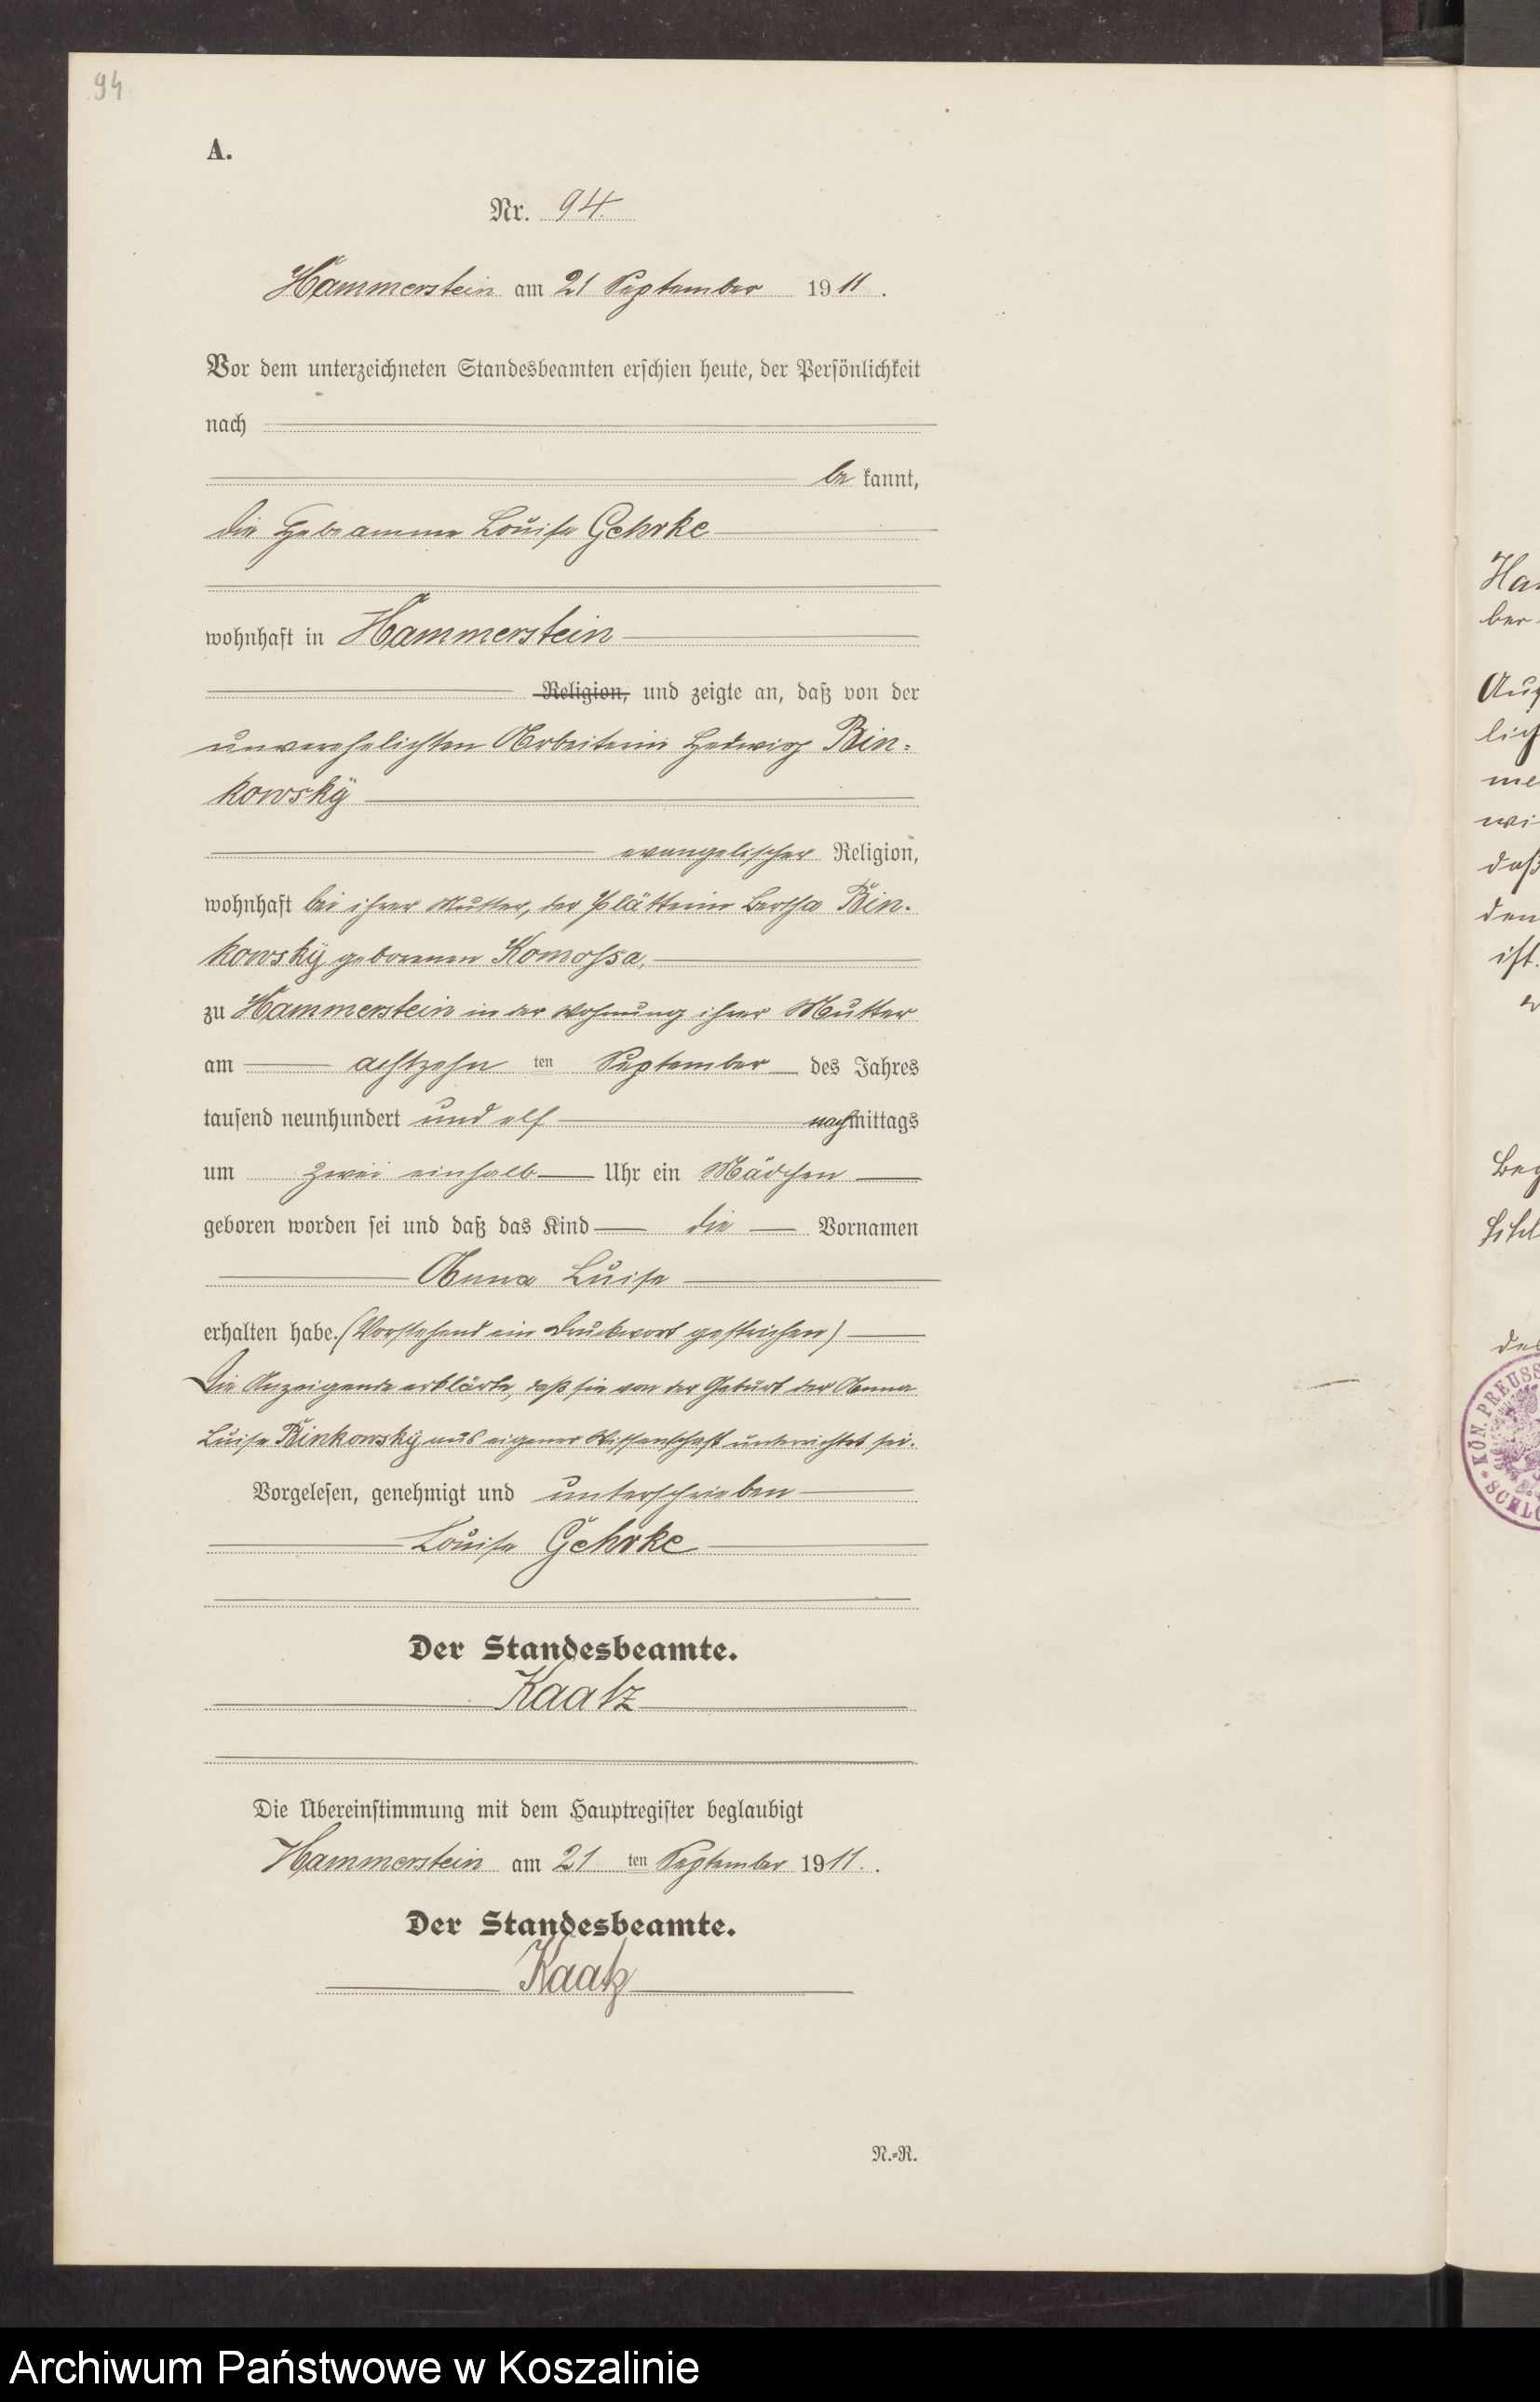 94
A.
Nr. 94.
Hammerstein am 21 September 1911.
Vor dem unterzeichneten Standesbeamten erschien heute, der Persönlichkeit
nach
be kannt,
die Hebeamme Louise Gehrke
wohnhaft in Hammerstein
Religion, und zeigte an, daß von der
unverehelichten Arbeiterin Hedwig Bin=
kowsky
evangelischer Religion,
wohnhaft bei ihrer Mutter, der Plätterin Bertha Bin-
kowsky geborenen Komossa,
zu Hammerstein in der Wohnung ihrer Mutter
am achtzehn ten September des Jahres
tausend neunhundert und elf nachmittags
um zwei einhalb Uhr ein Mädchen
geboren worden sei und daß das Kind die Vornamen
Anna Luise
erhalten habe. (Vorstehend ein Druckwort gestrichen)
Die Anzeigende erklärte, daß sie von der Geburt der Anna
Luise Binkowsky aus eigener Wissenschaft unterrichtet sei.
Vorgelesen, genehmigt und unterschrieben
Louise Gehrke
Der Standesbeamte.
Kaatz
Die Übereinstimmung mit dem Hauptregister beglaubigt
Hammerstein am 21 ten September 1911.
Der Standesbeamte.
Kaatz
N.=R.
KÖN. PREUSS
SCHLO
Archiwum Państwowe w Koszalinie